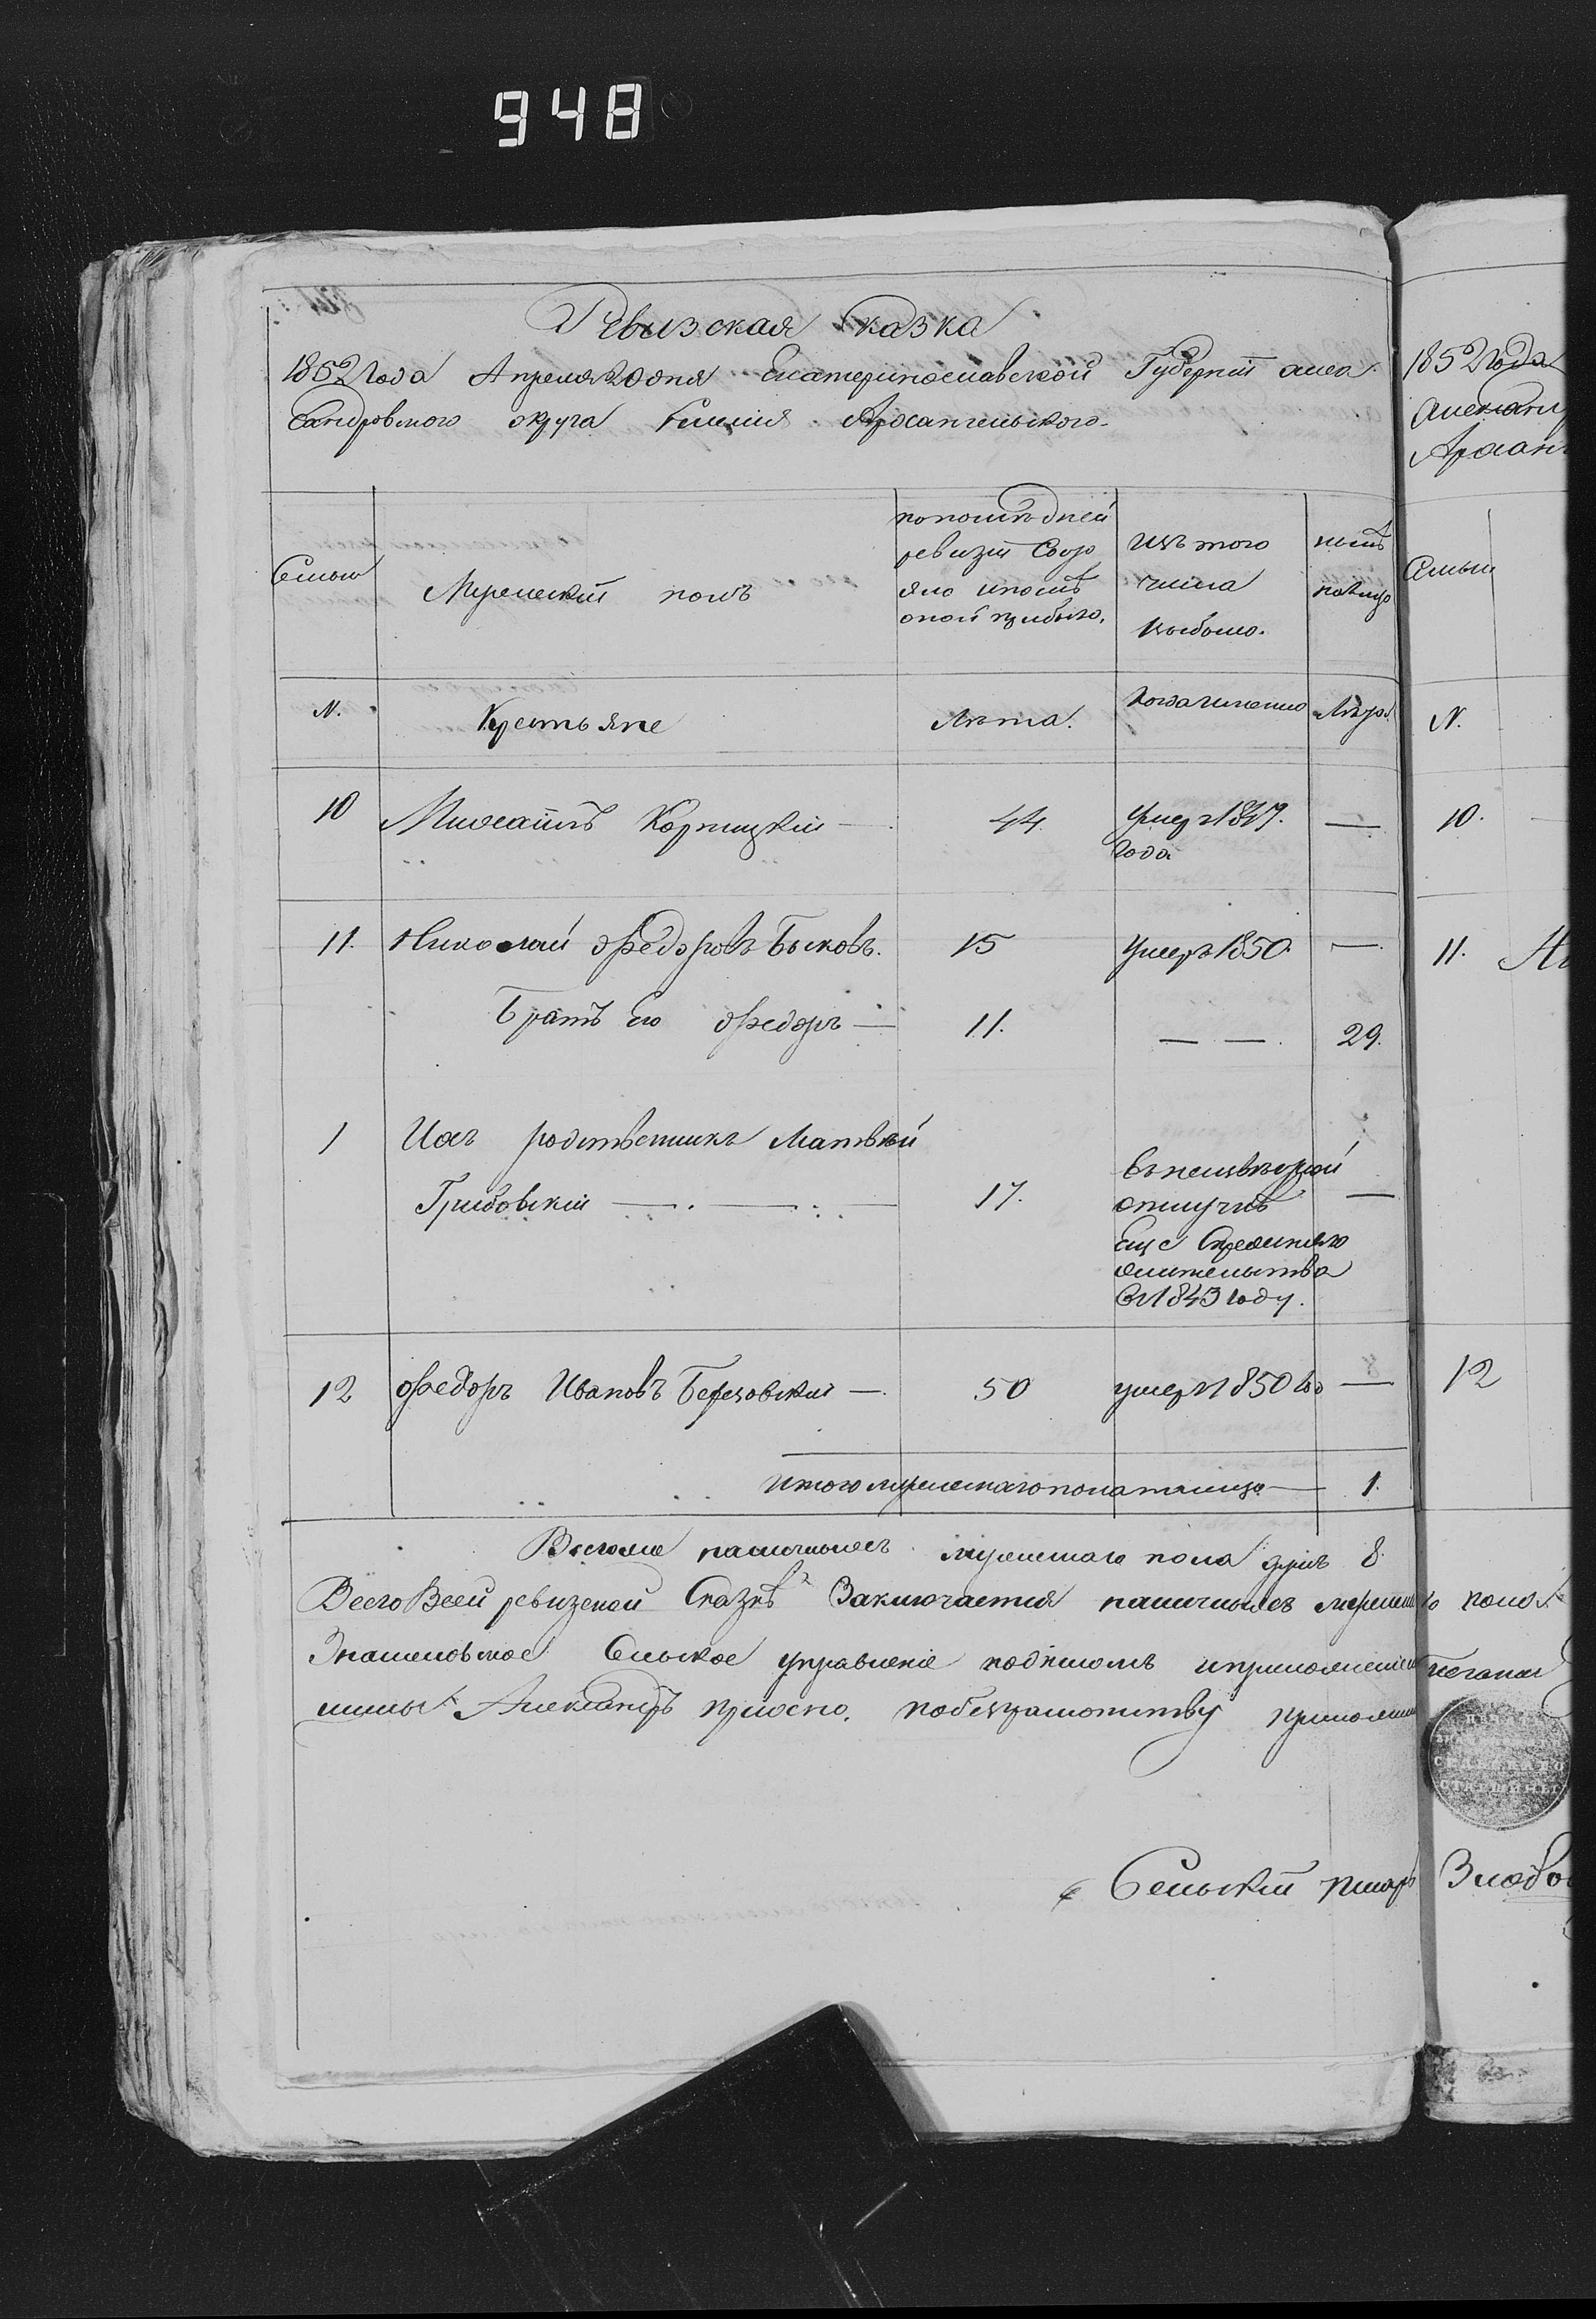 948
Ревизская сказка
1852 года Апреля 20 дня Екатеринославской Губерніи алек
сандровского округа селенія Архангельского.
Семьи
Мужескій полъ
по последней
ревизіи состо
яло и после
оной прибыло.
Изъ того
числа
выбыло.
ныне
налицо
N.
Крестьяне
Лета.
Когда именно
Лета
10
Михаилъ Корницкій —
44.
умеръ 1847.
года
—
11.
Николай Федоровъ Быковъ.
15
умеръ 1850.
—
Братъ Его Федоръ —
11.
— —.
29.
1
Ихъ родственикъ Матвей
Грибовскій — . — —
17.
въ неизвестной
отлучке
еще
жительства
съ 1843 году.
—
12
Федоръ Ивановъ Березовскій —.
50
умеръ 1850 го
—
Итого мужескаго пола налицо —
1.
Всего же наличныхъ мужескаго пола душъ 8.
Всего в сей ревизской Сказке Заключается наличныхъ мужеска
Знаменовское Сельское управленіе подписомъ и приложеніем
Александръ по безграмотству приложил
Сельскій писарь
1852 года
Александ
Архан
Семьи
N.
10.
11.
12
го пола
печати
СЕЛЬСКАГО
СТАРШИНЫ